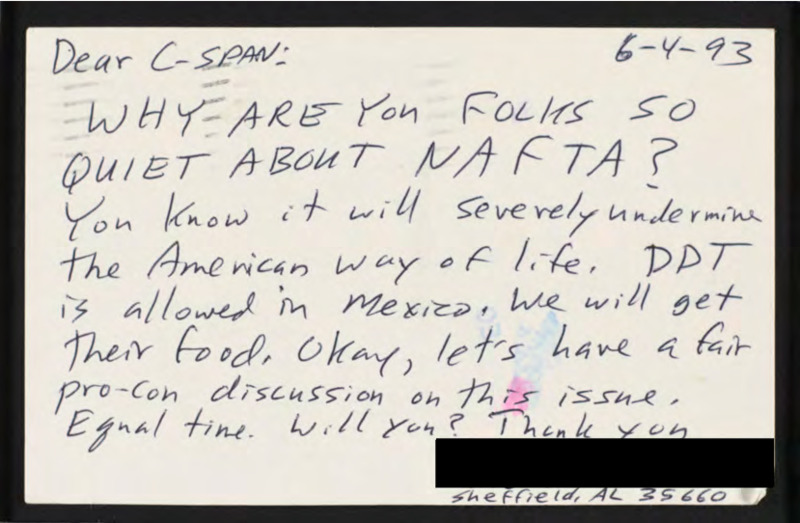 Dear C-SPAN: 6-4-93
WHY ARE YOU FOLKS SO
QUIET ABOUT NAFTA?
You know it will severely undermine
the American way of life. DDT
is allowed in Mexico. We will get
their food. Okay, let's have a fair
pro-con discussion on this issue.
Equal time. Will you? Thank you
Sheffield, AL 35660